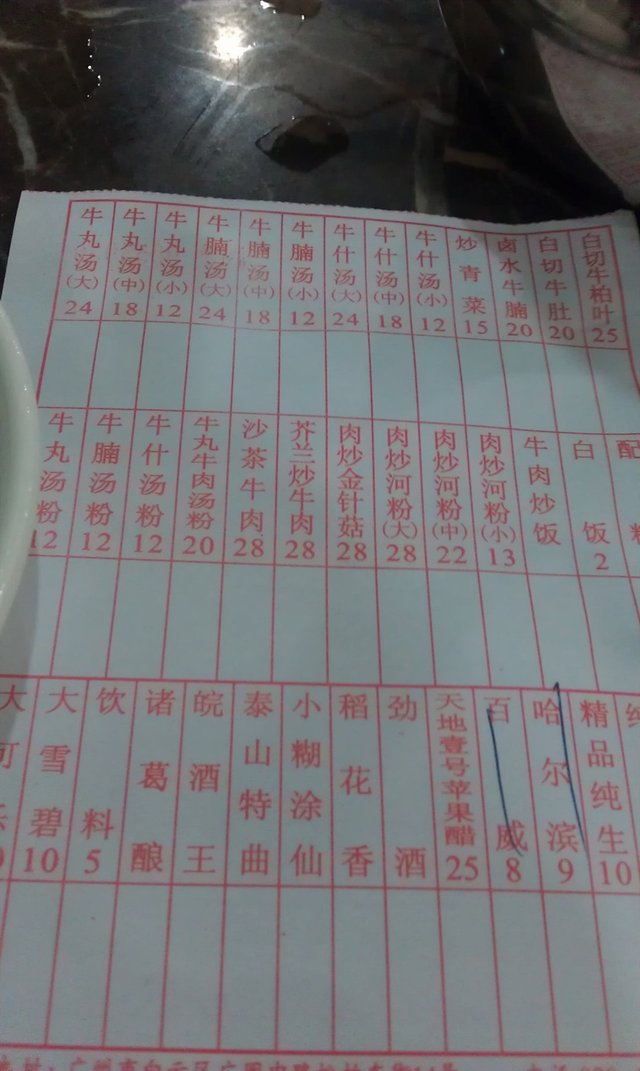 牛丸汤(大) 24
牛丸汤(中) 18
牛丸汤(小) 12
牛腩汤(大) 24
牛腩汤(中) 18
牛腩汤(小) 12
牛什汤(大) 24
牛什汤(中) 18
牛什汤(小) 12
炒青菜 15
卤水牛腩 20
白切牛肚 20
白切牛柏叶 25
牛丸汤粉 12
牛腩汤粉 12
牛什汤粉 12
牛丸牛肉汤粉 20
沙茶牛肉 28
芥兰炒牛肉 28
肉炒金针菇 28
肉炒河粉(大) 28
肉炒河粉(中) 22
肉炒河粉(小) 13
牛肉炒饭
白饭 2
配
大可乐
大雪碧 10
饮料 5
诸葛酿
皖酒王
泰山特曲
小糊涂仙
稻花香
劲酒
天地壹号苹果醋 25
百威 8
哈尔滨 9
精品纯生 10